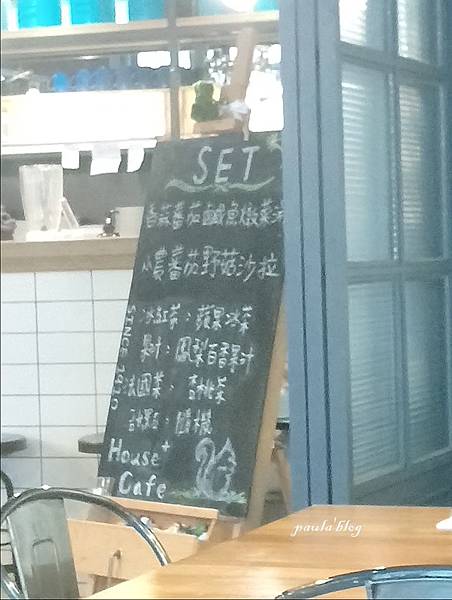 SET
香蒜蕃茄鹹魚燉菜
小農蕃茄野菇沙拉
冰紅茶:蘋果冰茶
果汁:鳳梨百香果汁
法國菜、杏桃茶
甜點:隨機
House+
Cafe
paula'blog